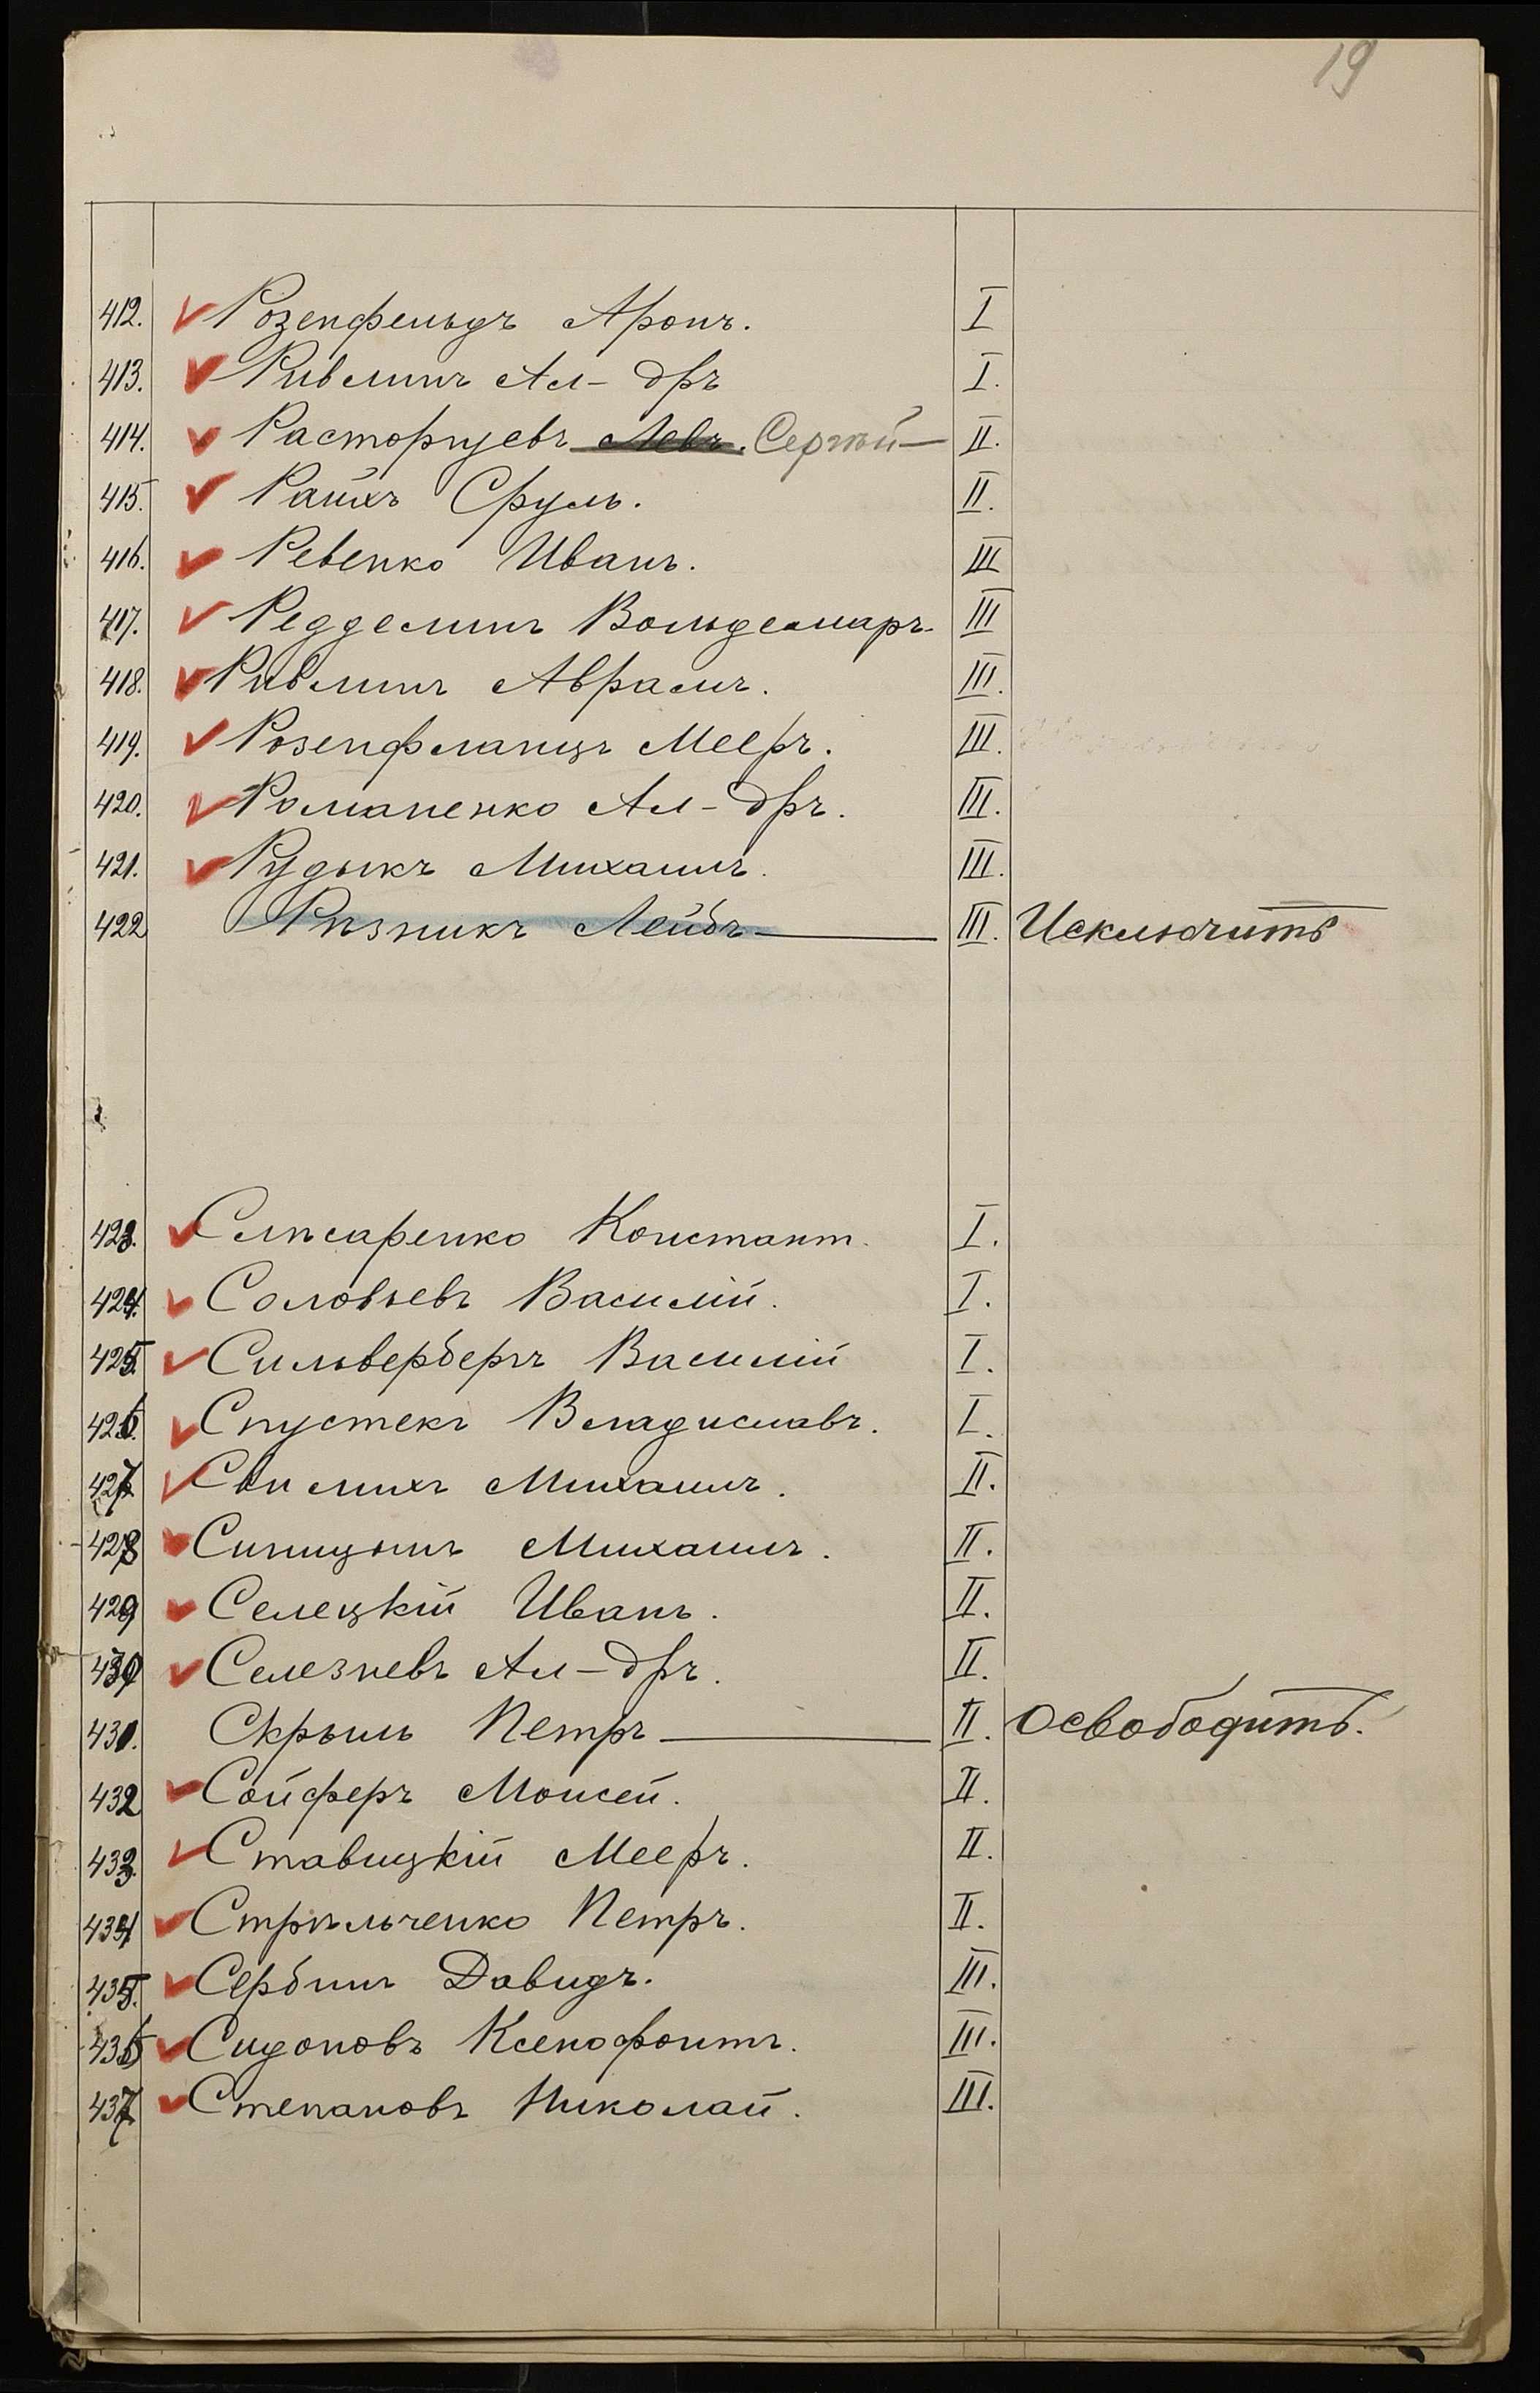 19
412. Розенфельдъ Аронъ. I
413. Ривлинъ Ал-дръ I.
414. Расторгуевъ Левъ. Сергѣй II.
415. Райхъ Сруль. II.
416. Ревенко Иванъ. III
417. Редделинъ Вольдемаръ. III
418. Ривлинъ Аврамъ. III.
419. Розенфланцъ Мееръ. III.
420. Романенко Ал-дръ. III.
421. Рудыкъ Михаилъ. III.
422 Рѣзникъ Лейбъ III. Исключить
423. Слѣсаренко Констант. I.
424. Соловьевъ Василій. I.
425. Сильвербергъ Василій I.
426. Спустекъ Владиславъ. I.
427 Свилихъ Михаилъ. II.
428 Синицынъ Михаилъ. II.
429 Селецкій Иванъ. II.
430 Селезневъ Ал-дръ. II.
431. Скрыль Петръ II. Освободить.
432 Сойферъ Моисей. II.
433. Ставицкій Мееръ. II.
434 Стрѣльченко Петръ. II.
435. Сербинъ Давидъ. III.
436 Сидоновъ Ксенофонтъ. III.
437 Степановъ Николай. III.